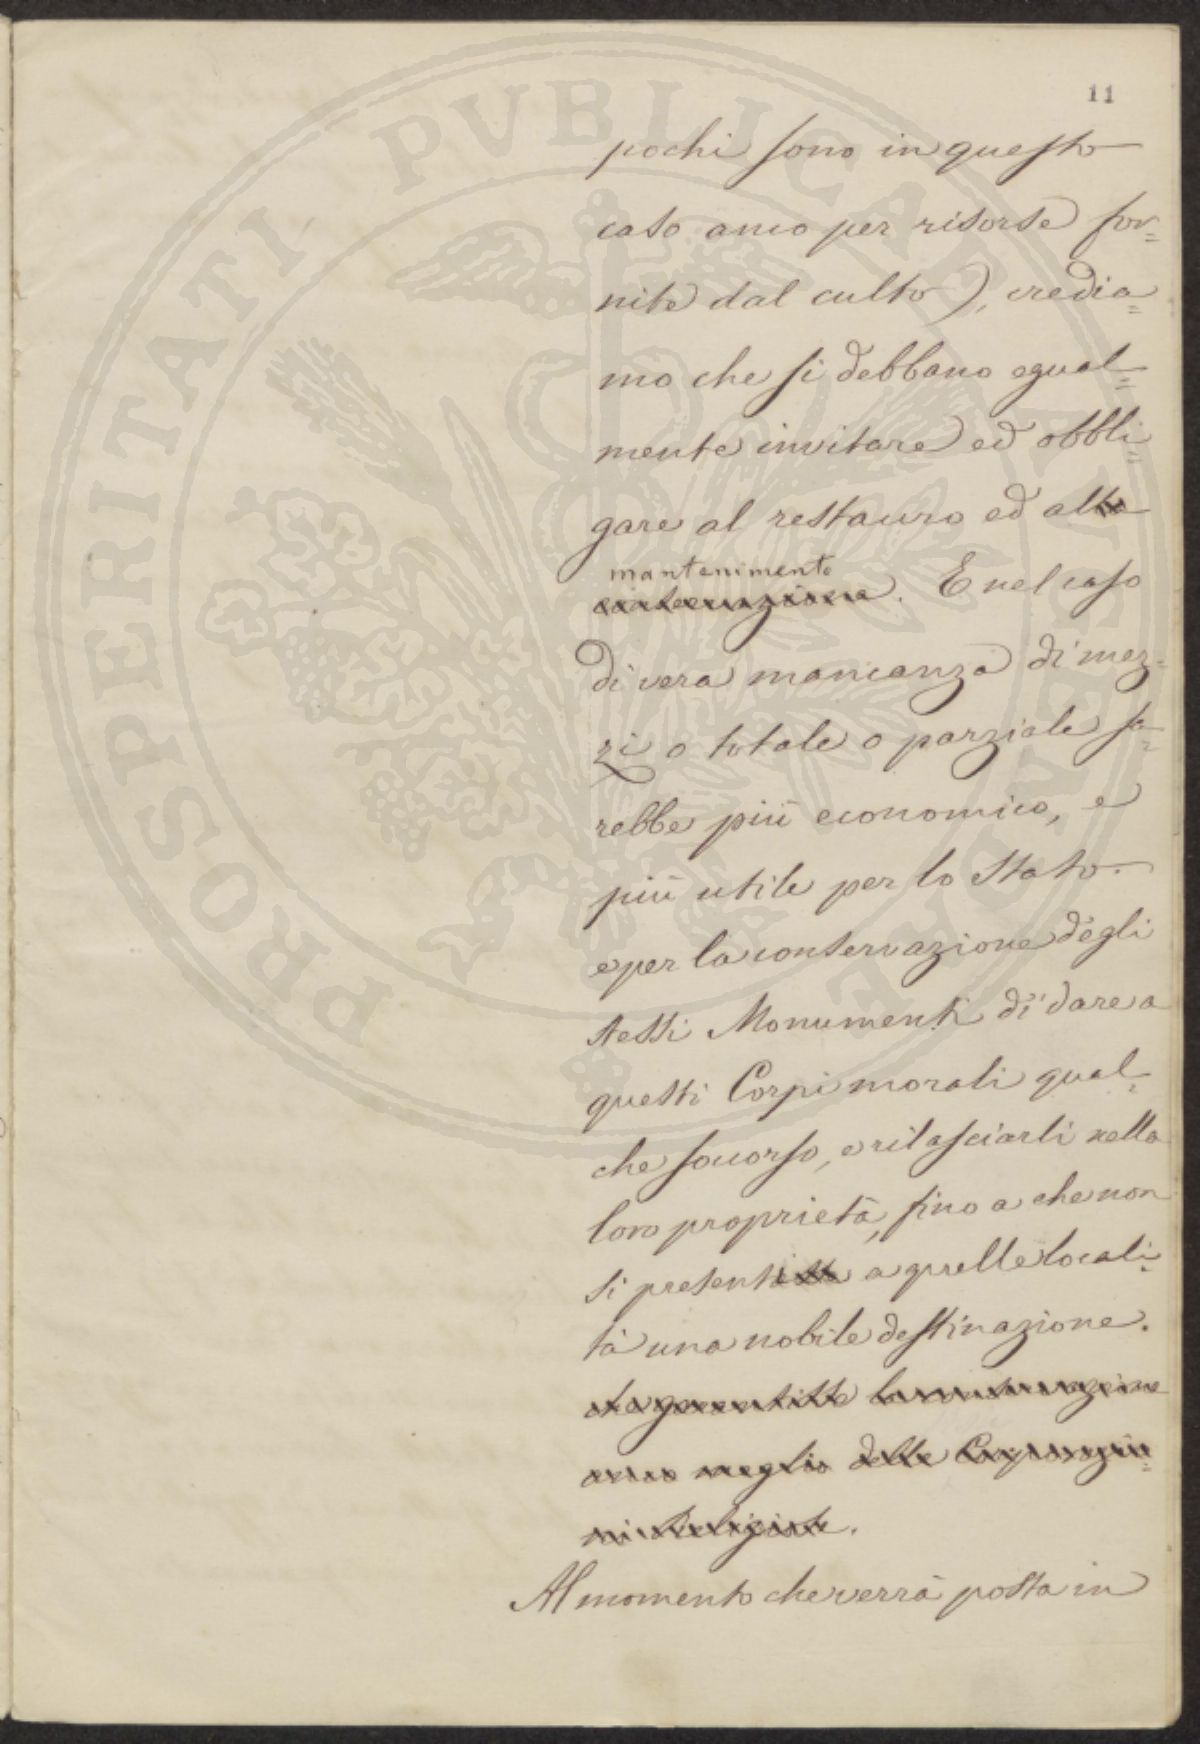 11
pochi sono in questo
caso anco per risorse for=
nite dal culto), credia=
mo che si debbano egual=
mente invitare ed obbli=
gare al restauro ed al
mantenimento
conservazione. E nel caso
di vera mancanza di mez=
zi o totale o parziale sa=
rebbe più economico, e
più utile per lo Stato
e per la conservazione degli
stessi Monumenti di dare a
questi Corpi morali qual=
che soccorso, e rilasciarli nella
loro proprietà, fino a che non
si presenti a quelle locali=
tà una nobile destinazione.
che garantisse la conservazione
anco meglio delle Corporazio=
ni Religiose.
Al momento che verrà posta in
PROSPERITATI PVBLICAE